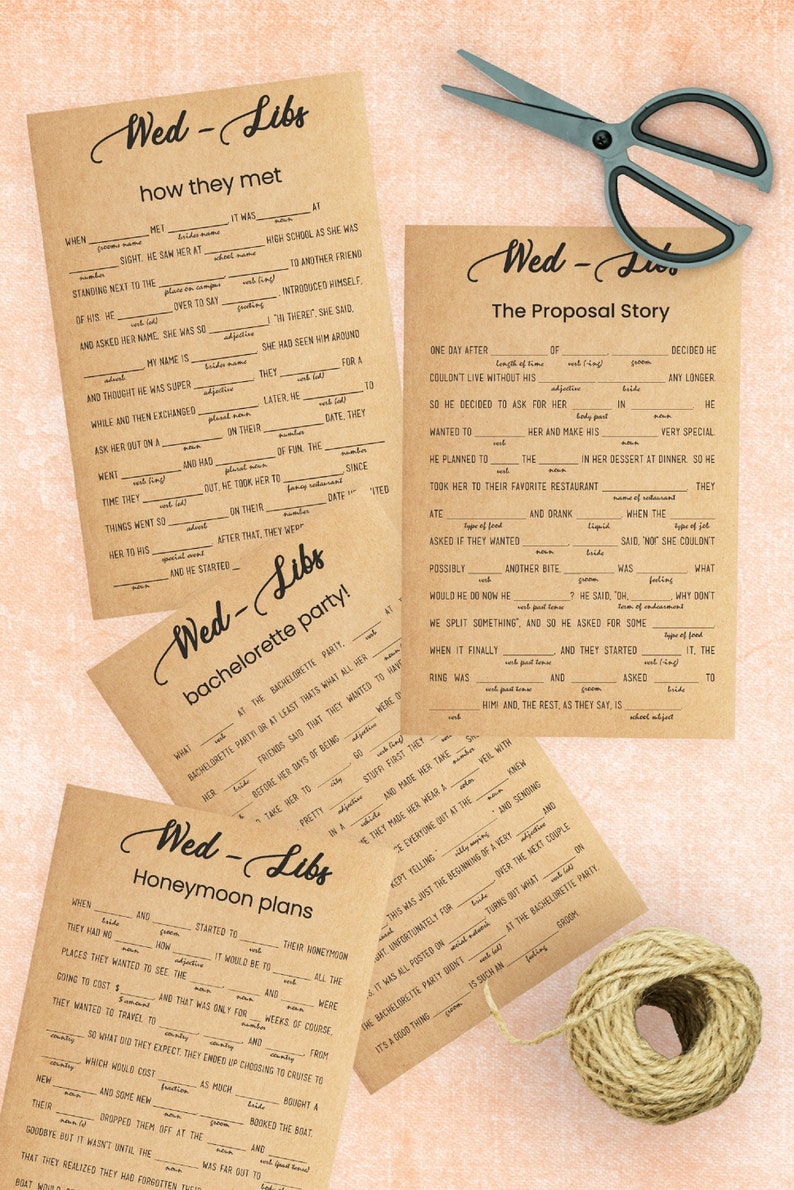 Wed - Libs
how they met
WHEN ____ MET ____, IT WAS ____ AT
grooms name brides name noun
____ SIGHT. HE SAW HER AT ____ HIGH SCHOOL AS SHE WAS
number school name
STANDING NEXT TO THE ____, ____ TO ANOTHER FRIEND
place on campus verb (ing)
OF HIS. HE ____ OVER TO SAY ____, INTRODUCED HIMSELF,
verb (ed) greeting
AND ASKED HER NAME. SHE WAS SO ____! "HI THERE!", SHE SAID,
adjective
____, MY NAME IS ____. SHE HAD SEEN HIM AROUND
adverb brides name
AND THOUGHT HE WAS SUPER ____. THEY ____ FOR A
adjective verb (ed)
WHILE AND THEN EXCHANGED ____. LATER, HE ____ TO
plural noun verb (ed)
ASK HER OUT ON A ____. ON THEIR ____ DATE, THEY
noun number
WENT ____ AND HAD ____ OF FUN. THE ____
verb (ing) plural noun number
TIME THEY ____ OUT, HE TOOK HER TO ____. SINCE
verb (ed) fancy restaurant
THINGS WENT SO ____ ON THEIR ____ DATE
adverb number
HER TO HIS ____. AFTER THAT, THEY WERE
special event
____ AND HE STARTED
noun
Wed - Libs
The Proposal Story
ONE DAY AFTER ____ OF ____, ____ DECIDED HE
length of time verb (-ing) groom
COULDN'T LIVE WITHOUT HIS ____ ____ ANY LONGER.
adjective bride
SO HE DECIDED TO ASK FOR HER ____ IN ____. HE
body part noun
WANTED TO ____ HER AND MAKE HIS ____ VERY SPECIAL.
verb noun
HE PLANNED TO ____ THE ____ IN HER DESSERT AT DINNER. SO HE
verb noun
TOOK HER TO THEIR FAVORITE RESTAURANT ____. THEY
name of restaurant
ATE ____ AND DRANK ____. WHEN THE ____
type of food liquid type of job
ASKED IF THEY WANTED ____, ____ SAID, "NO!" SHE COULDN'T
noun bride
POSSIBLY ____ ANOTHER BITE. ____ WAS ____. WHAT
verb groom feeling
WOULD HE DO NOW HE ____? HE SAID, "OH, ____, WHY DON'T
verb past tense term of endearment
WE SPLIT SOMETHING", AND SO HE ASKED FOR SOME ____.
type of food
WHEN IT FINALLY ____, AND THEY STARTED ____ IT, THE
verb past tense verb (-ing)
RING WAS ____ AND ____ ASKED ____ TO
verb past tense groom bride
____ HIM! AND, THE REST, AS THEY SAY, IS ____.
verb school subject
Wed - Libs
bachelorette party!
WHAT ____ AT THE BACHELORETTE PARTY, ____ AT TH
verb verb
BACHELORETTE PARTY! OR AT LEAST THATS WHAT ALL HER ____
noun
HER ____ FRIENDS SAID THAT THEY WANTED TO HAVE
bride
____ BEFORE HER DAYS OF BEING ____ WERE O
adjective
TAKE HER TO ____, GO ____
city verb (ing)
PRETTY ____ STUFF! FIRST THEY
adjective
IN A ____ AND MADE HER TAKE ____
vehicle number
THEY MADE HER WEAR A ____ VEIL WITH
color
EVERYONE OUT AT THE ____ KNEW
noun
KEPT YELLING "____" AND SENDING
silly saying
THIS WAS JUST THE BEGINNING OF A VERY ____ AND
adjective
UNFORTUNATELY FOR ____, OVER THE NEXT COUPLE
bride
IT WAS ALL POSTED ON ____ TURNS OUT WHAT ____ ON
social network verb (ed)
THE BACHELORETTE PARTY DIDN'T ____ AT THE BACHELORETTE PARTY.
verb (ed)
IT'S A GOOD THING ____ IS SUCH AN ____ GROOM.
groom feeling
Wed - Libs
Honeymoon plans
WHEN ____ AND ____ STARTED TO ____ THEIR HONEYMOON
bride groom verb
THEY HAD NO ____ HOW ____ IT WOULD BE TO ____ ALL THE
noun adjective verb
PLACES THEY WANTED TO SEE THE ____, ____ AND ____ WERE
noun noun noun
GOING TO COST $____ AND THAT WAS ONLY FOR ____ WEEKS. OF COURSE,
$ amount number
THEY WANTED TO TRAVEL TO ____, ____ AND ____, FROM
country country country
____ SO WHAT DID THEY EXPECT. THEY ENDED UP CHOOSING TO CRUISE TO
country
____, WHICH WOULD COST ____ AS MUCH. ____ BOUGHT A
country fraction bride
NEW ____ AND SOME NEW ____. ____ BOOKED THE BOAT.
noun noun groom
THEIR ____ DROPPED THEM OFF AT THE ____ AND ____
noun (s) noun verb (past tense)
GOODBYE BUT IT WASN'T UNTIL THE ____ WAS FAR OUT TO ____
noun body
THAT THEY REALIZED THEY HAD FORGOTTEN THEIR